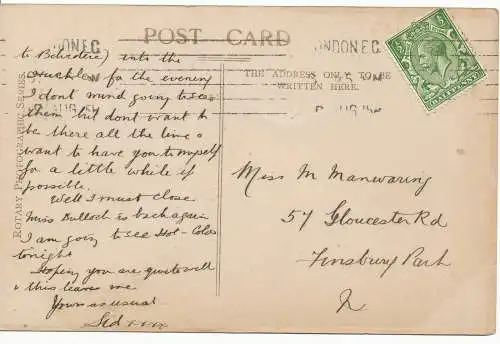 POST CARD
LONDON E.C.
THE ADDRESS ONLY TO BE
WRITTEN HERE.
ROTARY PHOTOGRAPHIC SERIES.
HALFPENNY
to Belvedere) into the
for the evening
I dont mind going to see
them but dont want to
be there all the time
want to have you to myself
for a little while if
possible.
Well I must close
Miss Bulloch is back again
I am going to see Hot-Coles
tonight
Hoping you are quite well
& this leaves me
Yours as usual
Sid x x x x
Miss M Manwaring
57 Gloucester Rd
Finsbury Park
N